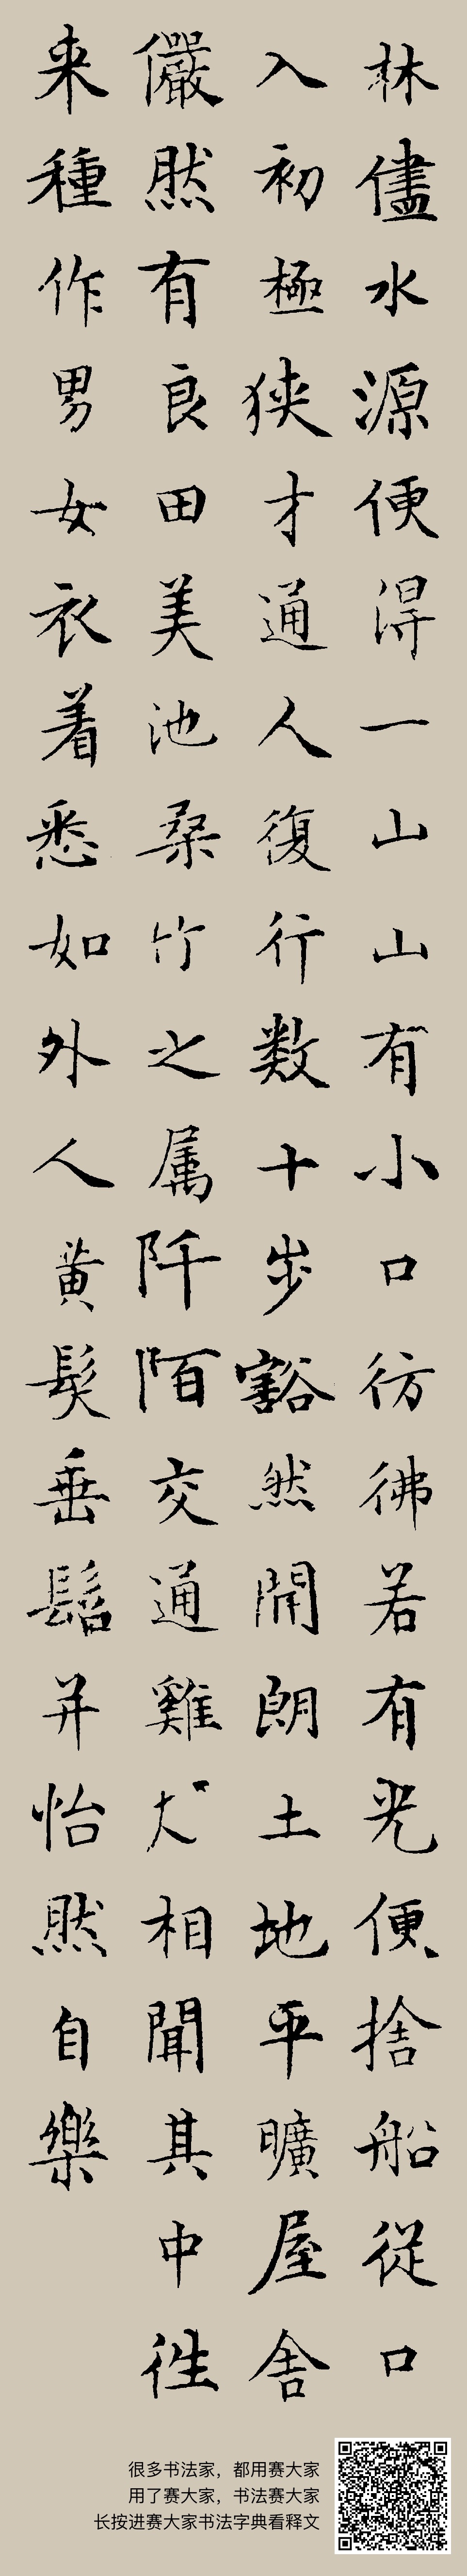 林儘水源便得一山山有小口彷彿若有光便捨船從口
入初極狹才通人復行数十步豁然開朗土地平曠屋舍
儼然有良田美池桑竹之属阡陌交通雞犬相聞其中徃
来種作男女衣着悉如外人黄髮垂髫并怡然自樂
很多书法家，都用赛大家
用了赛大家，书法赛大家
长按进赛大家书法字典看释文